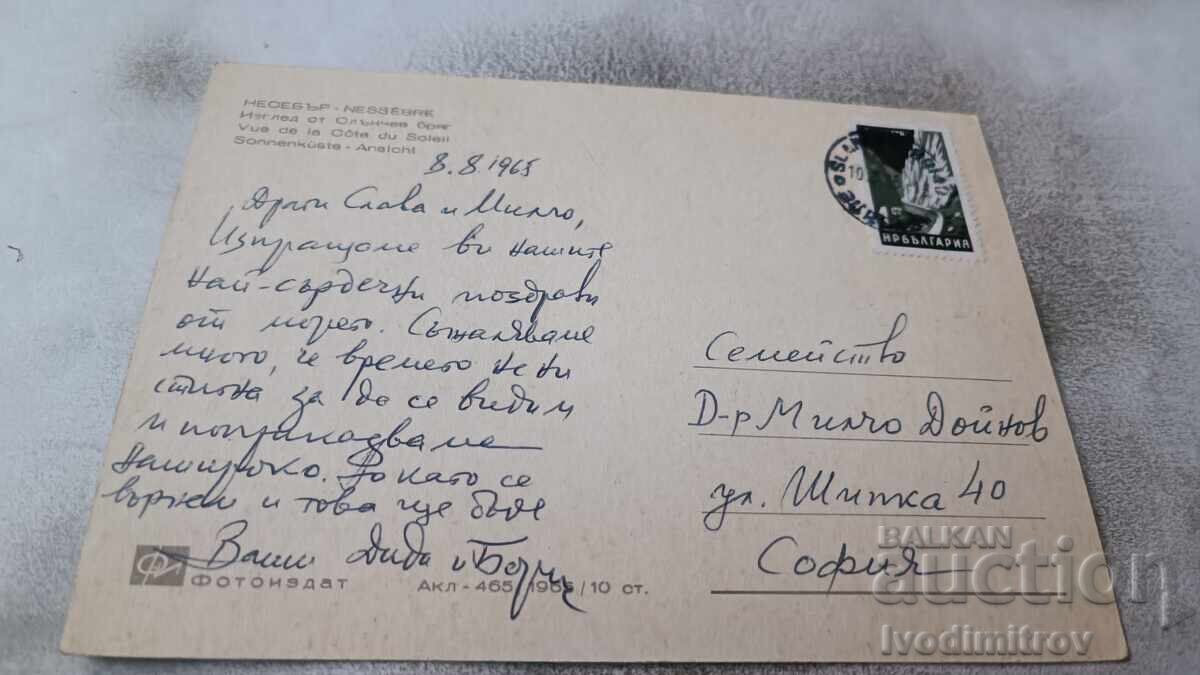 НЕСЕБЪР - NESSÈBRE
Изглед от Слънчев бряг
Vue de la Côte du Soleil
Sonnenküste - Ansicht
8.8.1965
Драги Слава и Милчо,
Изпращаме ви нашите
най-сърдечни поздрави
от морето. Съжаляваме
много, че времето не ни
стигна за да се видим
и
нашироко. Но като се
върнем и това ще бъде
Ваши Диди и
ФОТОИЗДАТ
Акл - 465 1965 / 10 ст.
НР БЪЛГАРИЯ
Семейство
Д-р Милчо Дойнов
ул. Шипка 40
София
BALKAN
auction
Ivodimitrov